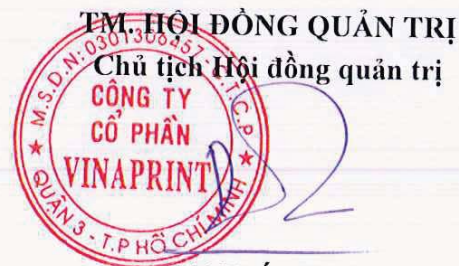 TM. HỘI ĐỒNG QUẢN TRỊ
Chủ tịch Hội đồng quản trị
M.S.D.N: 0301306457 C.T.C.P
CÔNG TY
CỔ PHẦN
VINAPRINT
QUẬN 3 - T.P HỒ CHÍ MINH